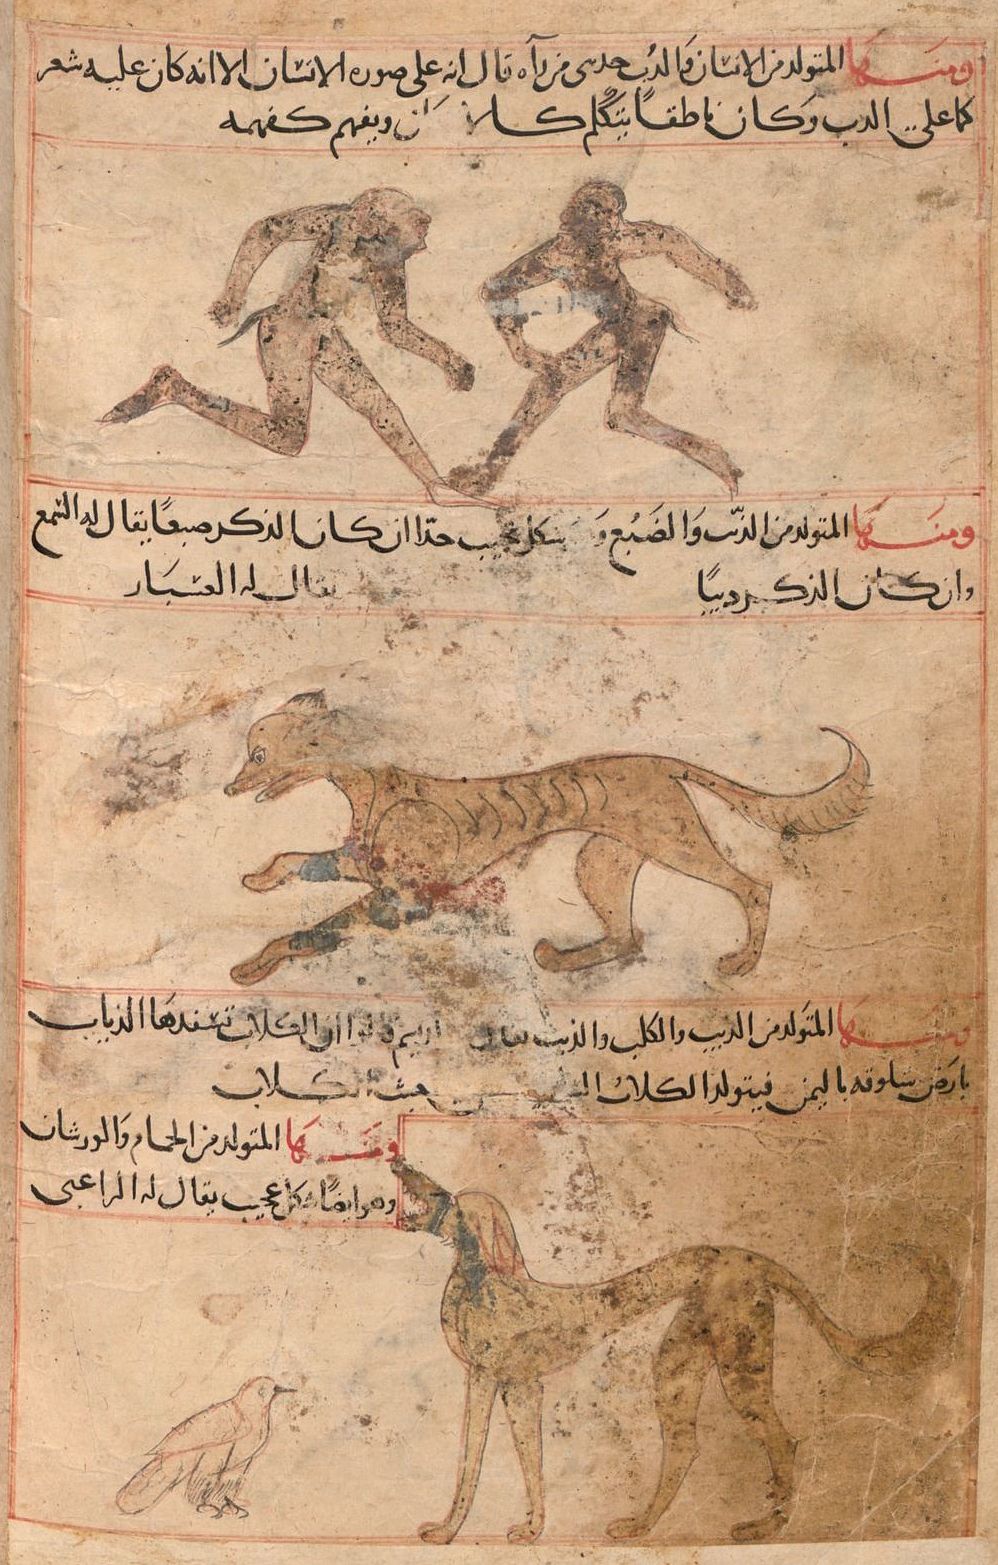 ومنها المتولد من الانسان والدب حدثنى من رآه قال انه على صوره الانسان الا انه كان عليه شعر
كما على الدب وكان ناطقا يتكلم ويفهم كفهمه
ومنها المتولد من الذئب والضبع شكل عجيب جدا ان كان الذكر ضبعا يقال له السمع
وان كان الذكر ذيبا يقال له العسبار
ومنها المتولد من الذيب والكلب والذيب قالوا ان الكلاب تسفدها الذياب
بارض سلوقه باليمن فيتولد الكلاب الكلاب
ومنها المتولد من الحمام والورشان
وهو ايضا شكل عجيب يقال له الراعبى